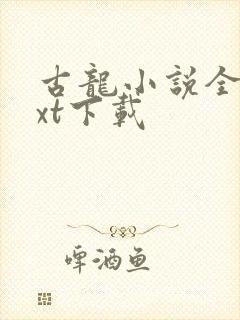 古龍小説全
xt下載
啤酒鱼